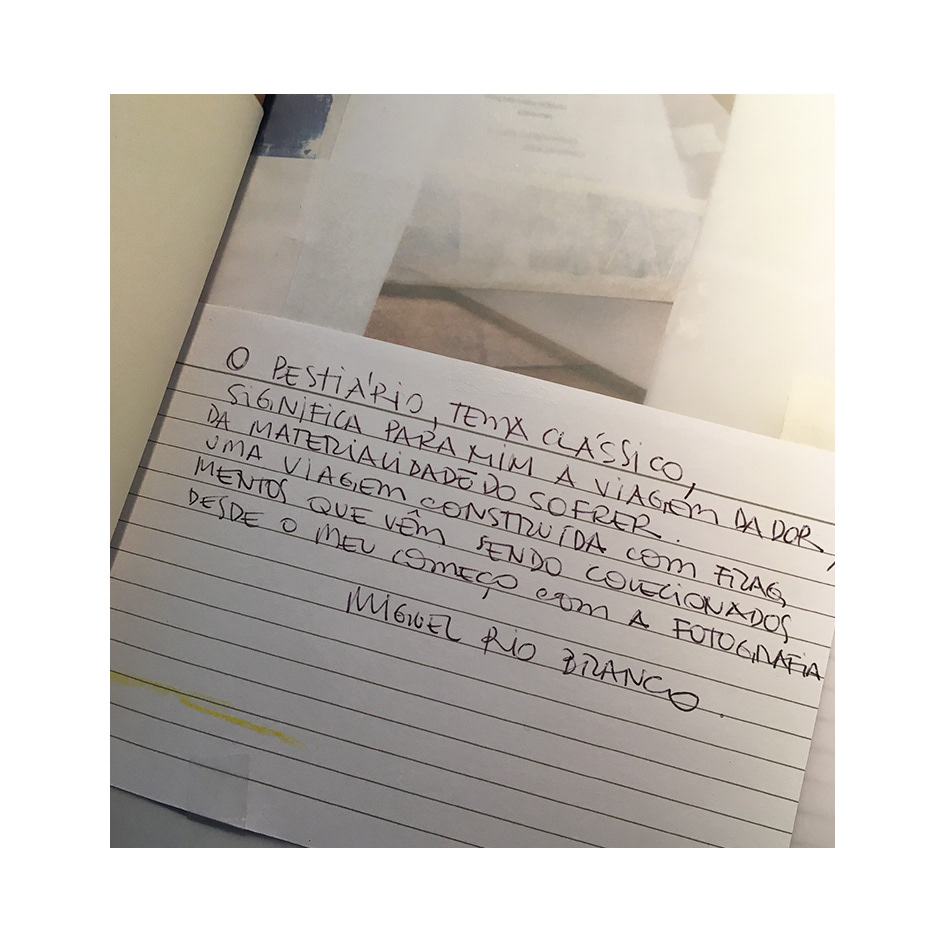 O BESTIÁRIO, TEMA CLÁSSICO,
SIGNIFICA PARA MIM A VIAGEM DA DOR,
DA MATERIALIDADE DO SOFRER.
UMA VIAGEM CONSTRUÍDA COM FRAG,
MENTOS QUE VÊM SENDO COLECIONADOS
DESDE O MEU COMEÇO COM A FOTOGRAFIA
MIGUEL RIO BRANCO.